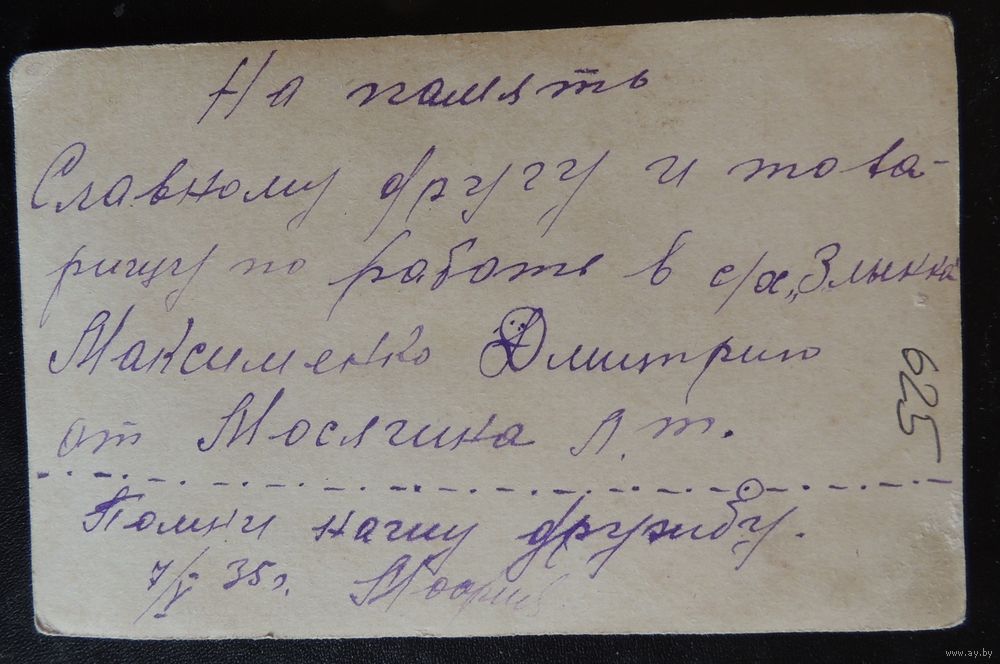 На память
Славному другу и това-
рищу по работе в с/х „Злынка"
Максименко Дмитрию
от Мосягина А. т.
Помни нашу дружбу.
7/V 35 г.
625
www.ay.by